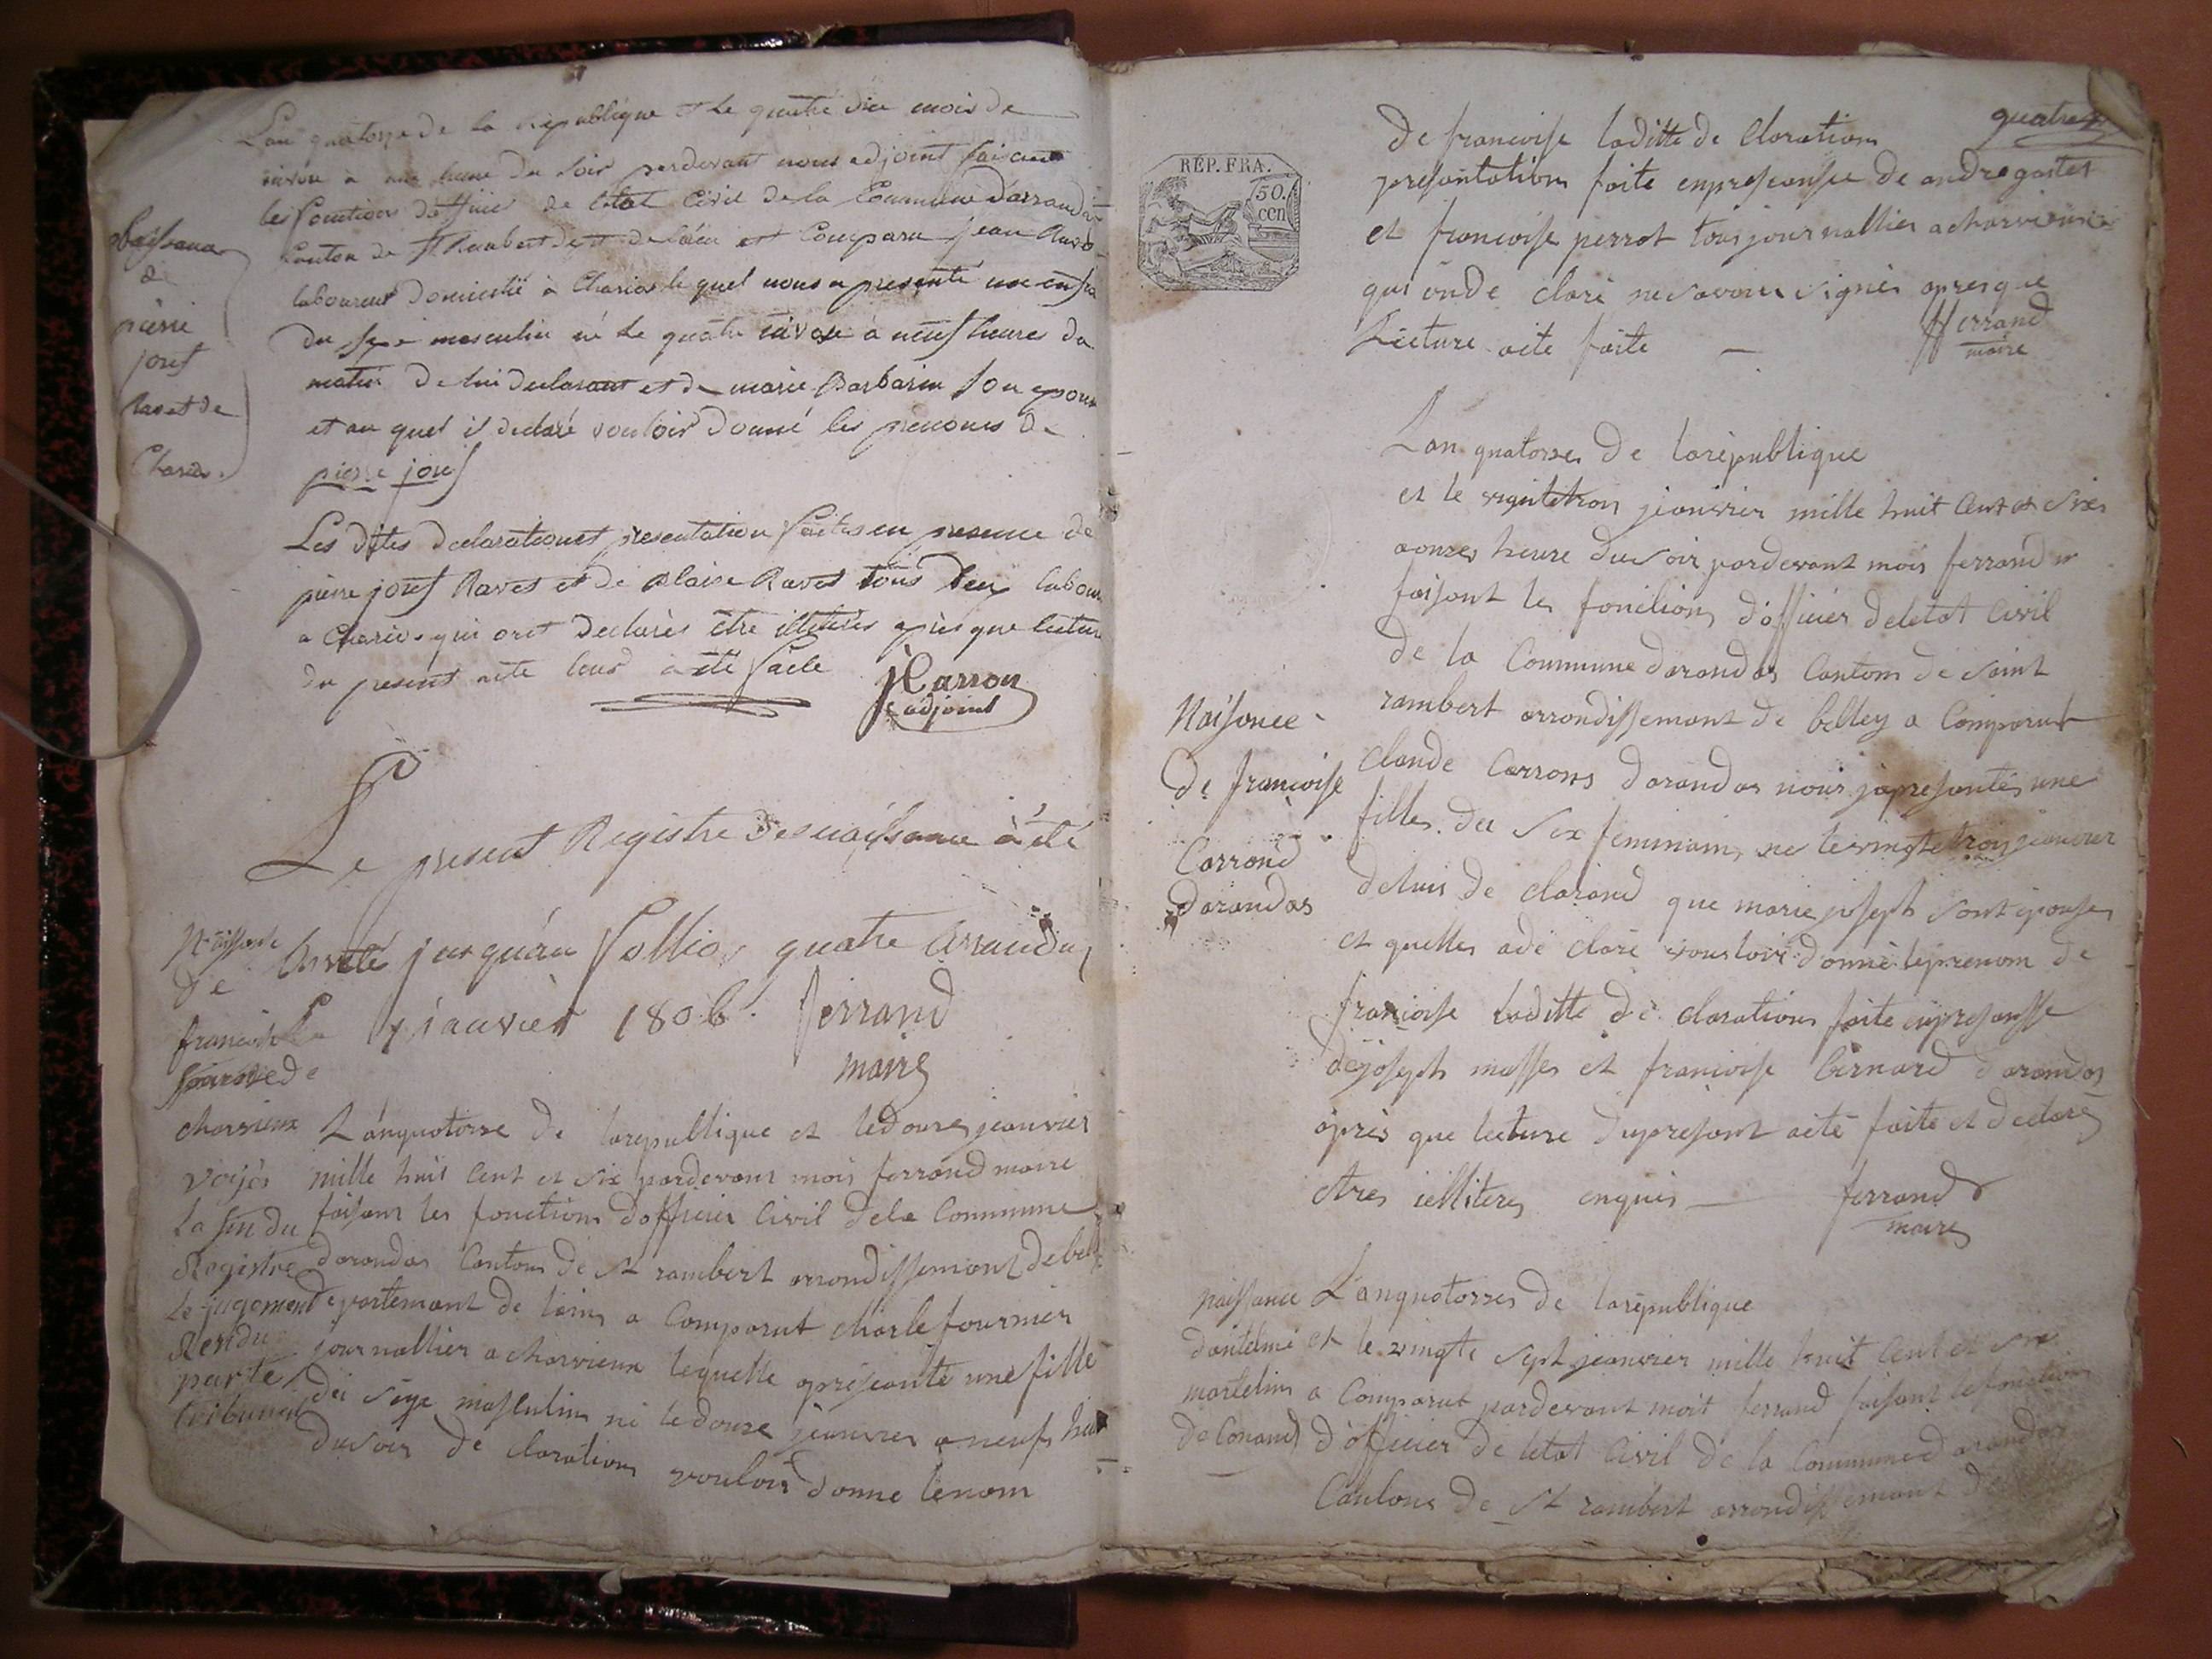 L'an quatorze de la république et le quatre du mois de
nivose a une heure du soir pardevant nous adjoint faisant
les fonctions d'officier de letat civil de la Commune d'arrandas
Canton de St Rambert dept de l'ain est Comparu jean Ravet
laboureur Domicilié à Charios le quel nous a presenté un enfan
du sexe masculin né le quatre nivose à neuf heures du
matin de lui declarant et de marie Barbarin son epouse
et au quel il declaré vouloir donné les prenoms de
pierre josef
Les dites declaration et presentation faites en presence de
pierre josef Ravet et de Blaise Ravet tous deux labour
a Charios qui ont declarés être illitérés après que lectur
du present acte leur a été faite
jCarron
adjoint
Naissance
de
pierre
josef
Ravet de
Charios
Le present Registre des naissance à été
Arreté jusqu'au follio quatre Arrandas
Le 1 janvier 1806. ferrand
maire
Naissance
de
francoise
fournie de
charvieux
voijés
La fin du
Registre
Le jugement
Rendu
par le
tribunal
L'anquatorse de larepublique et ledouse jeanvier
mille huit Cent et six pardevant mois ferrand maire
faisant les fonctions dofficier Civil dela Commune
darandas Canton de St rambert arrondissemant de bell
departemant de lains a Comparut charle fournier
journallier a charvieux lequelle apreseanté une fille
du sexe masculin né le douse jeanvier a neufs heur
dusoir de claration vouloir donne lenom
quatre
RÉP. FRA.
50.
cen
de francoise laditte de Claration
presantation faite enpreseansse de andre gastet
et francoise perrot tous journallier a charvieux
qui onde claré nesavoir signer apres que
Lecture acte faite — fferrand
maire
Lan quatorse de larépublique
et le vingttrois jeanvier mille huit Cent et six
aonses heure dusoir pardevant mois ferrand m
faisant les fonctions d'officier deletat Civil
de la Commune darandas Canton de saint
rambert arrondissemant de belley a Comparut
Claude Carrons darandas nous japresantés une
filles du sex feminain ne levingtetroij jeanvier
delui de clarand que marie joseph sont epouses
et quelles ade claré vousloir donné leprenom de
francoise laditte de claration faite enpresansse
de joseph masses et francoise bernard darandas
après que lecture dupresant acte faite et declarés
etres illiteres enquis — ferrand
maire
Naisonce
de francoise
Carrond
darandas
Naissance
dantelme
martelin
de Conand
L'anquatorses de larépublique
et le vingte sept jeanvier mille huit Cent et six
a Comparut pardevant moit ferrand faisant lefonction
d'officier de letat Civil de la Commune darandas
Cantons de St rambert arrondissemant de